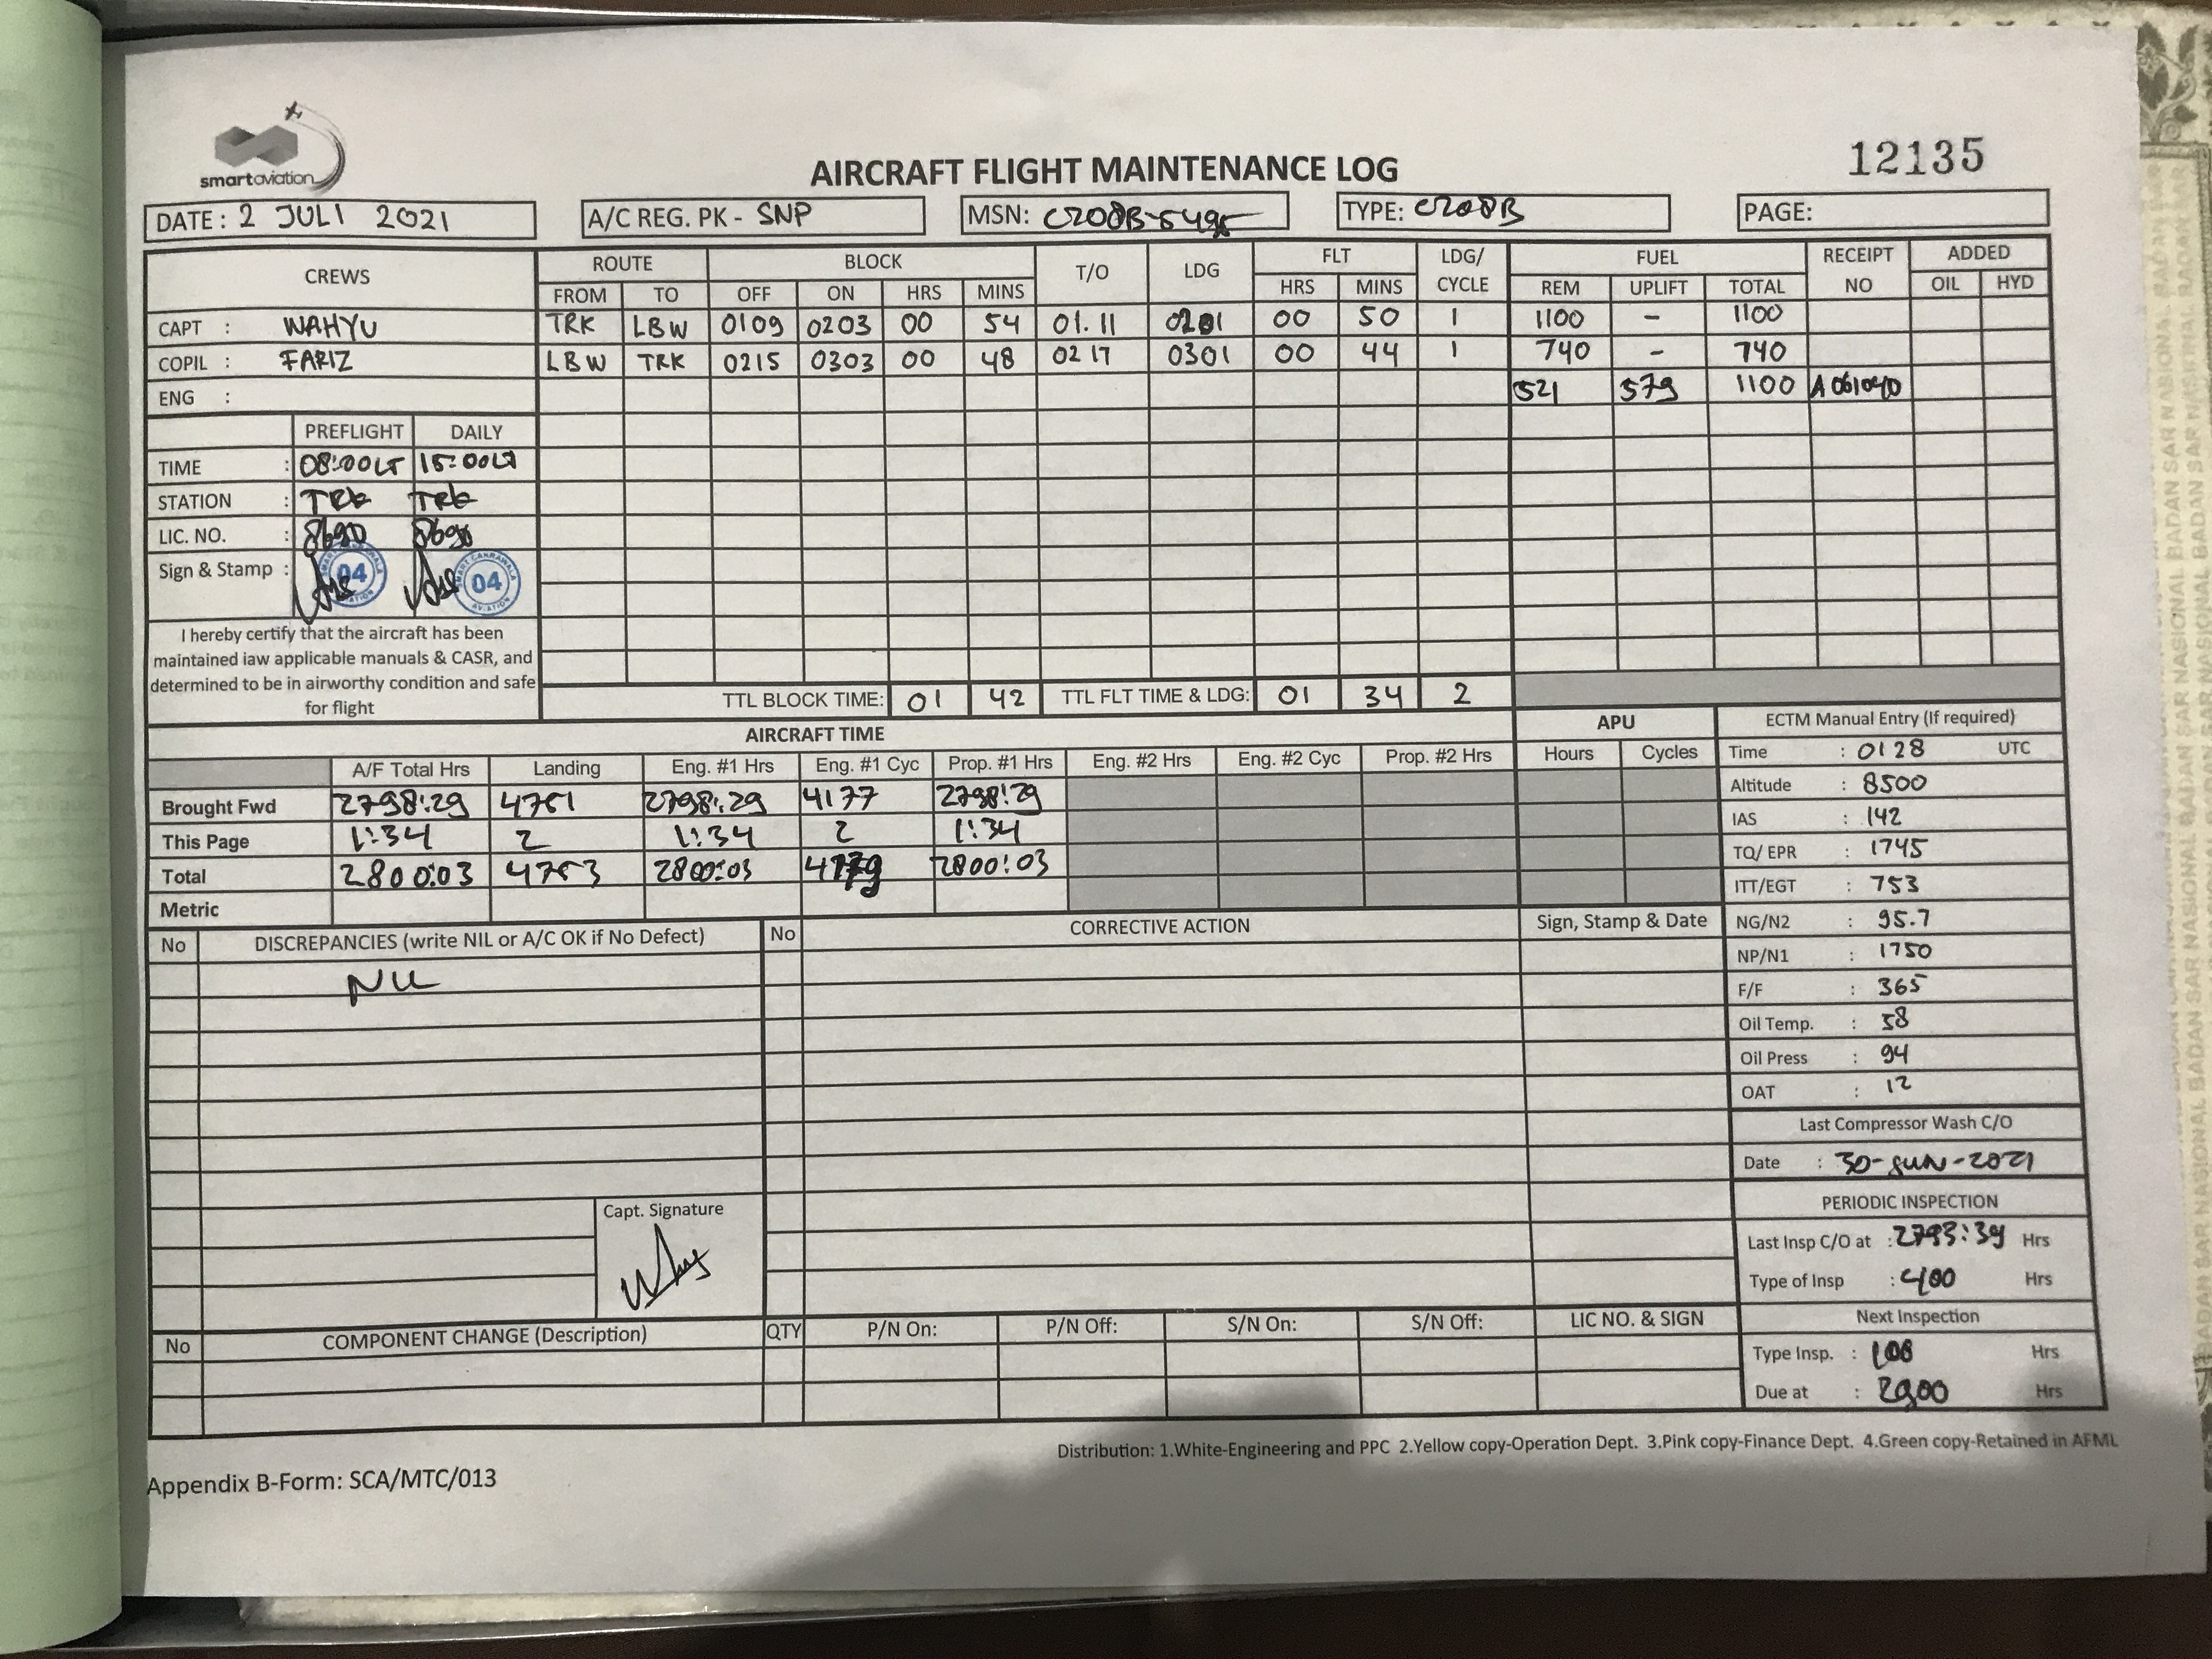 smartaviation
AIRCRAFT FLIGHT MAINTENANCE LOG
12135
DATE : 2 JULI 2021
A/C REG. PK - SNP
MSN: C208B-5495
TYPE: C208B
PAGE:
CREWS ROUTE BLOCK T/O LDG FLT LDG/ CYCLE FUEL RECEIPT NO ADDED
FROM TO OFF ON HRS MINS HRS MINS REM UPLIFT TOTAL OIL HYD
CAPT : WAHYU TRK LBW 0109 0203 00 54 01.11 0201 00 50 1 1100 - 1100
COPIL : FARIZ LBW TRK 0215 0303 00 48 0217 0301 00 44 1 740 - 740
ENG : 521 579 1100 A061040
PREFLIGHT DAILY
TIME : 08:00LT 15:00LT
STATION : TRK TRK
LIC. NO. : 8690 8690
Sign & Stamp : 04 04
I hereby certify that the aircraft has been
maintained iaw applicable manuals & CASR, and
determined to be in airworthy condition and safe
for flight
TTL BLOCK TIME: 01 42 TTL FLT TIME & LDG: 01 34 2
AIRCRAFT TIME
A/F Total Hrs Landing Eng. #1 Hrs Eng. #1 Cyc Prop. #1 Hrs Eng. #2 Hrs Eng. #2 Cyc Prop. #2 Hrs
Brought Fwd 2798:29 4751 2798:29 4177 2798:29
This Page 1:34 2 1:34 2 1:34
Total 2800:03 4753 2800:03 4179 2800:03
Metric
APU
Hours Cycles
ECTM Manual Entry (If required)
Time : 0128 UTC
Altitude : 8500
IAS : 142
TQ/ EPR : 1745
ITT/EGT : 753
NG/N2 : 95.7
NP/N1 : 1750
F/F : 365
Oil Temp. : 58
Oil Press : 94
OAT : 12
Last Compressor Wash C/O
Date : 30-JUN-2021
PERIODIC INSPECTION
Last Insp C/O at : 2793:39 Hrs
Type of Insp : 400 Hrs
Next Inspection
Type Insp. : 100 Hrs
Due at : 2900 Hrs
No DISCREPANCIES (write NIL or A/C OK if No Defect) No CORRECTIVE ACTION Sign, Stamp & Date
NIL
Capt. Signature
No COMPONENT CHANGE (Description) QTY P/N On: P/N Off: S/N On: S/N Off: LIC NO. & SIGN
Distribution: 1.White-Engineering and PPC 2.Yellow copy-Operation Dept. 3.Pink copy-Finance Dept. 4.Green copy-Retained in AFML
Appendix B-Form: SCA/MTC/013